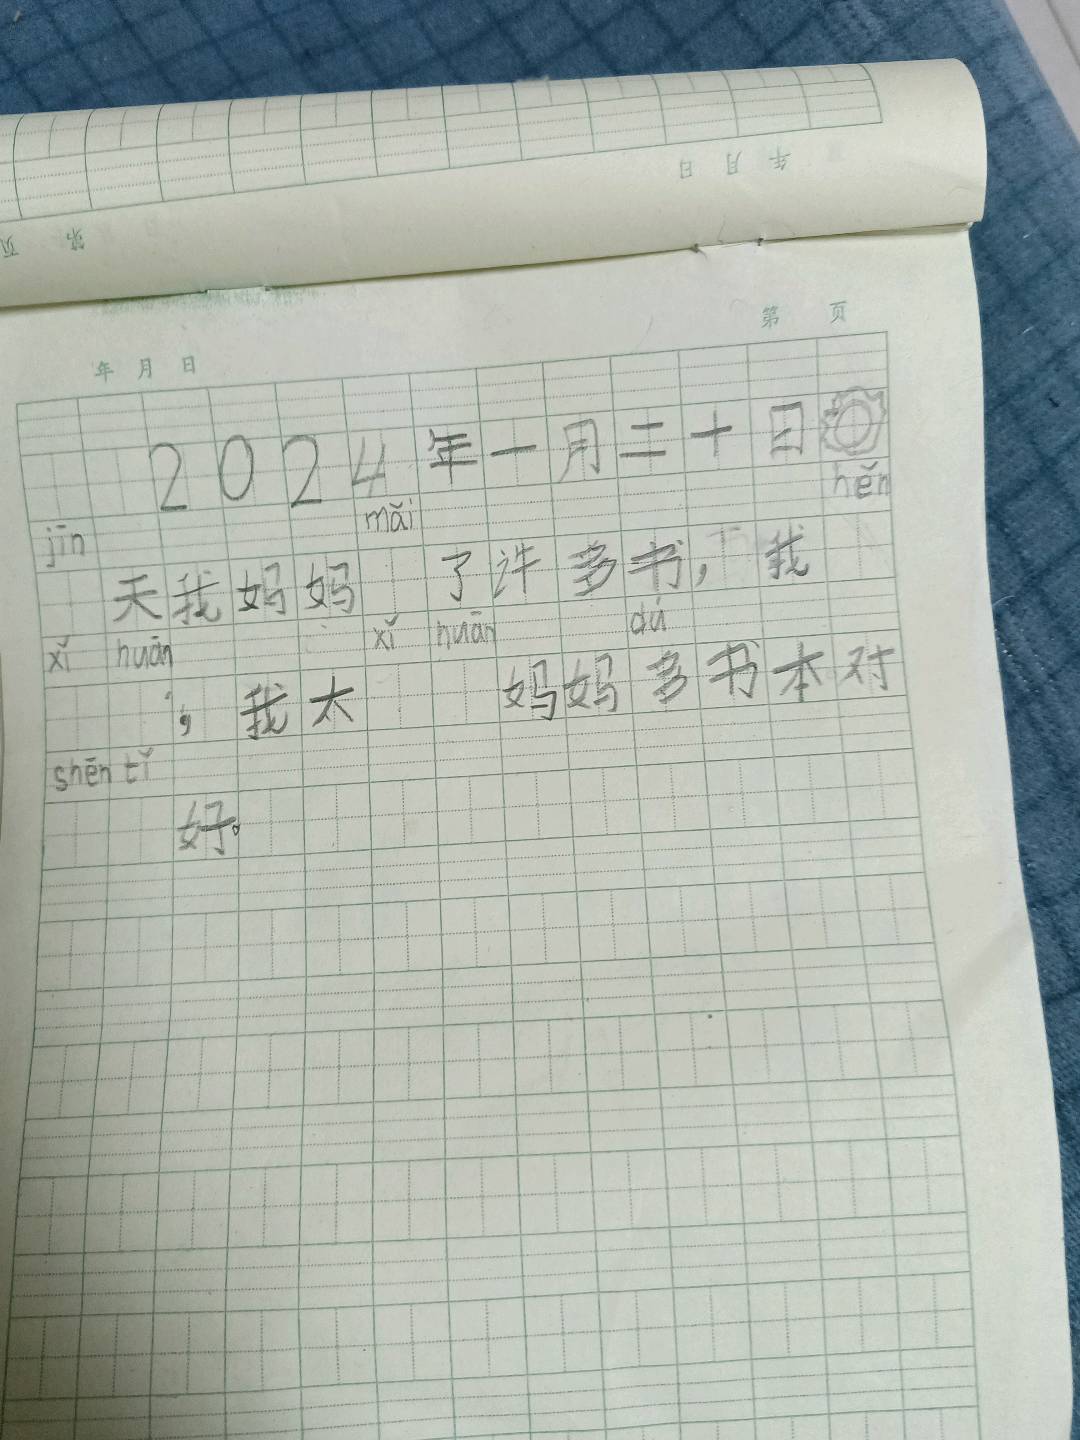 年 月 日
第 页
年 月 日
第 页
2024年一月二十日
jīn mǎi hěn
天我妈妈 了许多书，我
xǐ huān xǐ huān dú
，我太 妈妈多书本对
shēn tǐ
好。